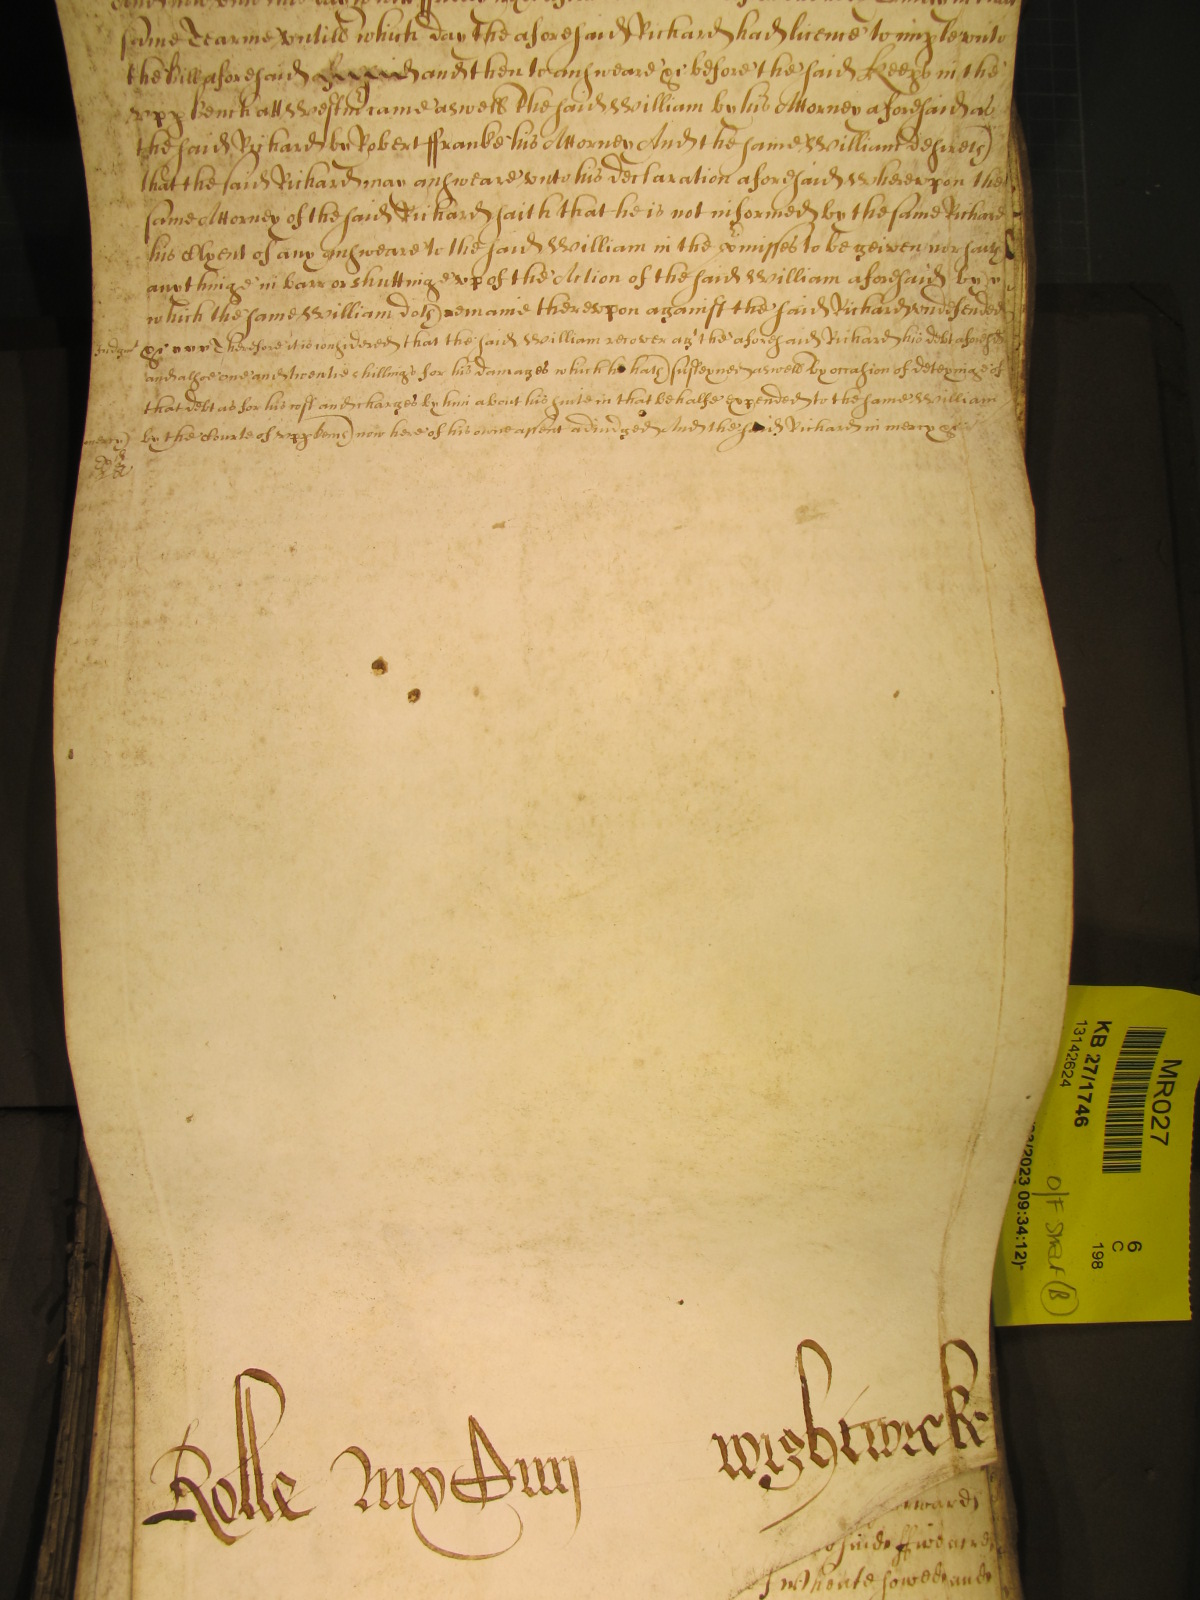 same Tearme untill which day the aforesaid Richard had licence to imple unto
the Bill aforesaid and then to answeare &c before the said Keeps in the
upp bench att Westm came aswell the said William by his Attorney aforesaid as
the said Richard by Robert ffranke his Attorney And the same William desireth
that the said Richard may answeare unto his declaration aforesaid Whereupon the
same Attorney of the said Richard saith that he is not informed by the same Richard
his Clyent of any answeare to the said William in the p'misses to be geiven nor saith
any thinge in barr or shuttinge upp of the Action of the said William aforesaid by
which the same William doth remaine thereupon against the said Richard undefended
Judgmt &c Therefore it is considered that the said William recover agt the aforesaid Richard his debt aforesaid
and alsoe one and twentie shillings for his damages which he hath susteyned aswell by occasion of deteyninge of
that debt as for his cost and charges by him about his suite in that behalfe expended to the same William
mercy by the Courte of upp bench now here of his owne assent adiudged And the said Richard in mercy &c
MR027
KB 27/1746
13142624
6
C
198
2023 09:34:12)
O/F Street (B)
Rolle
Wightwick